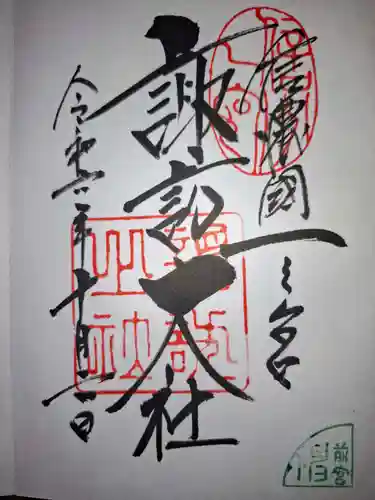 信濃國一之宮
諏訪大社
令和二年十月二日
前宮